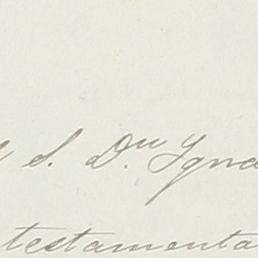 S. Dn. Igna
testamenta